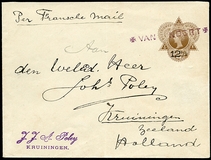 Per Fransche Mail
*VAN
12½
Aan
den Weled. Heer
Joh.s Poley
Kruiningen
Zeeland
Holland
J. J. S. Poley
KRUININGEN.